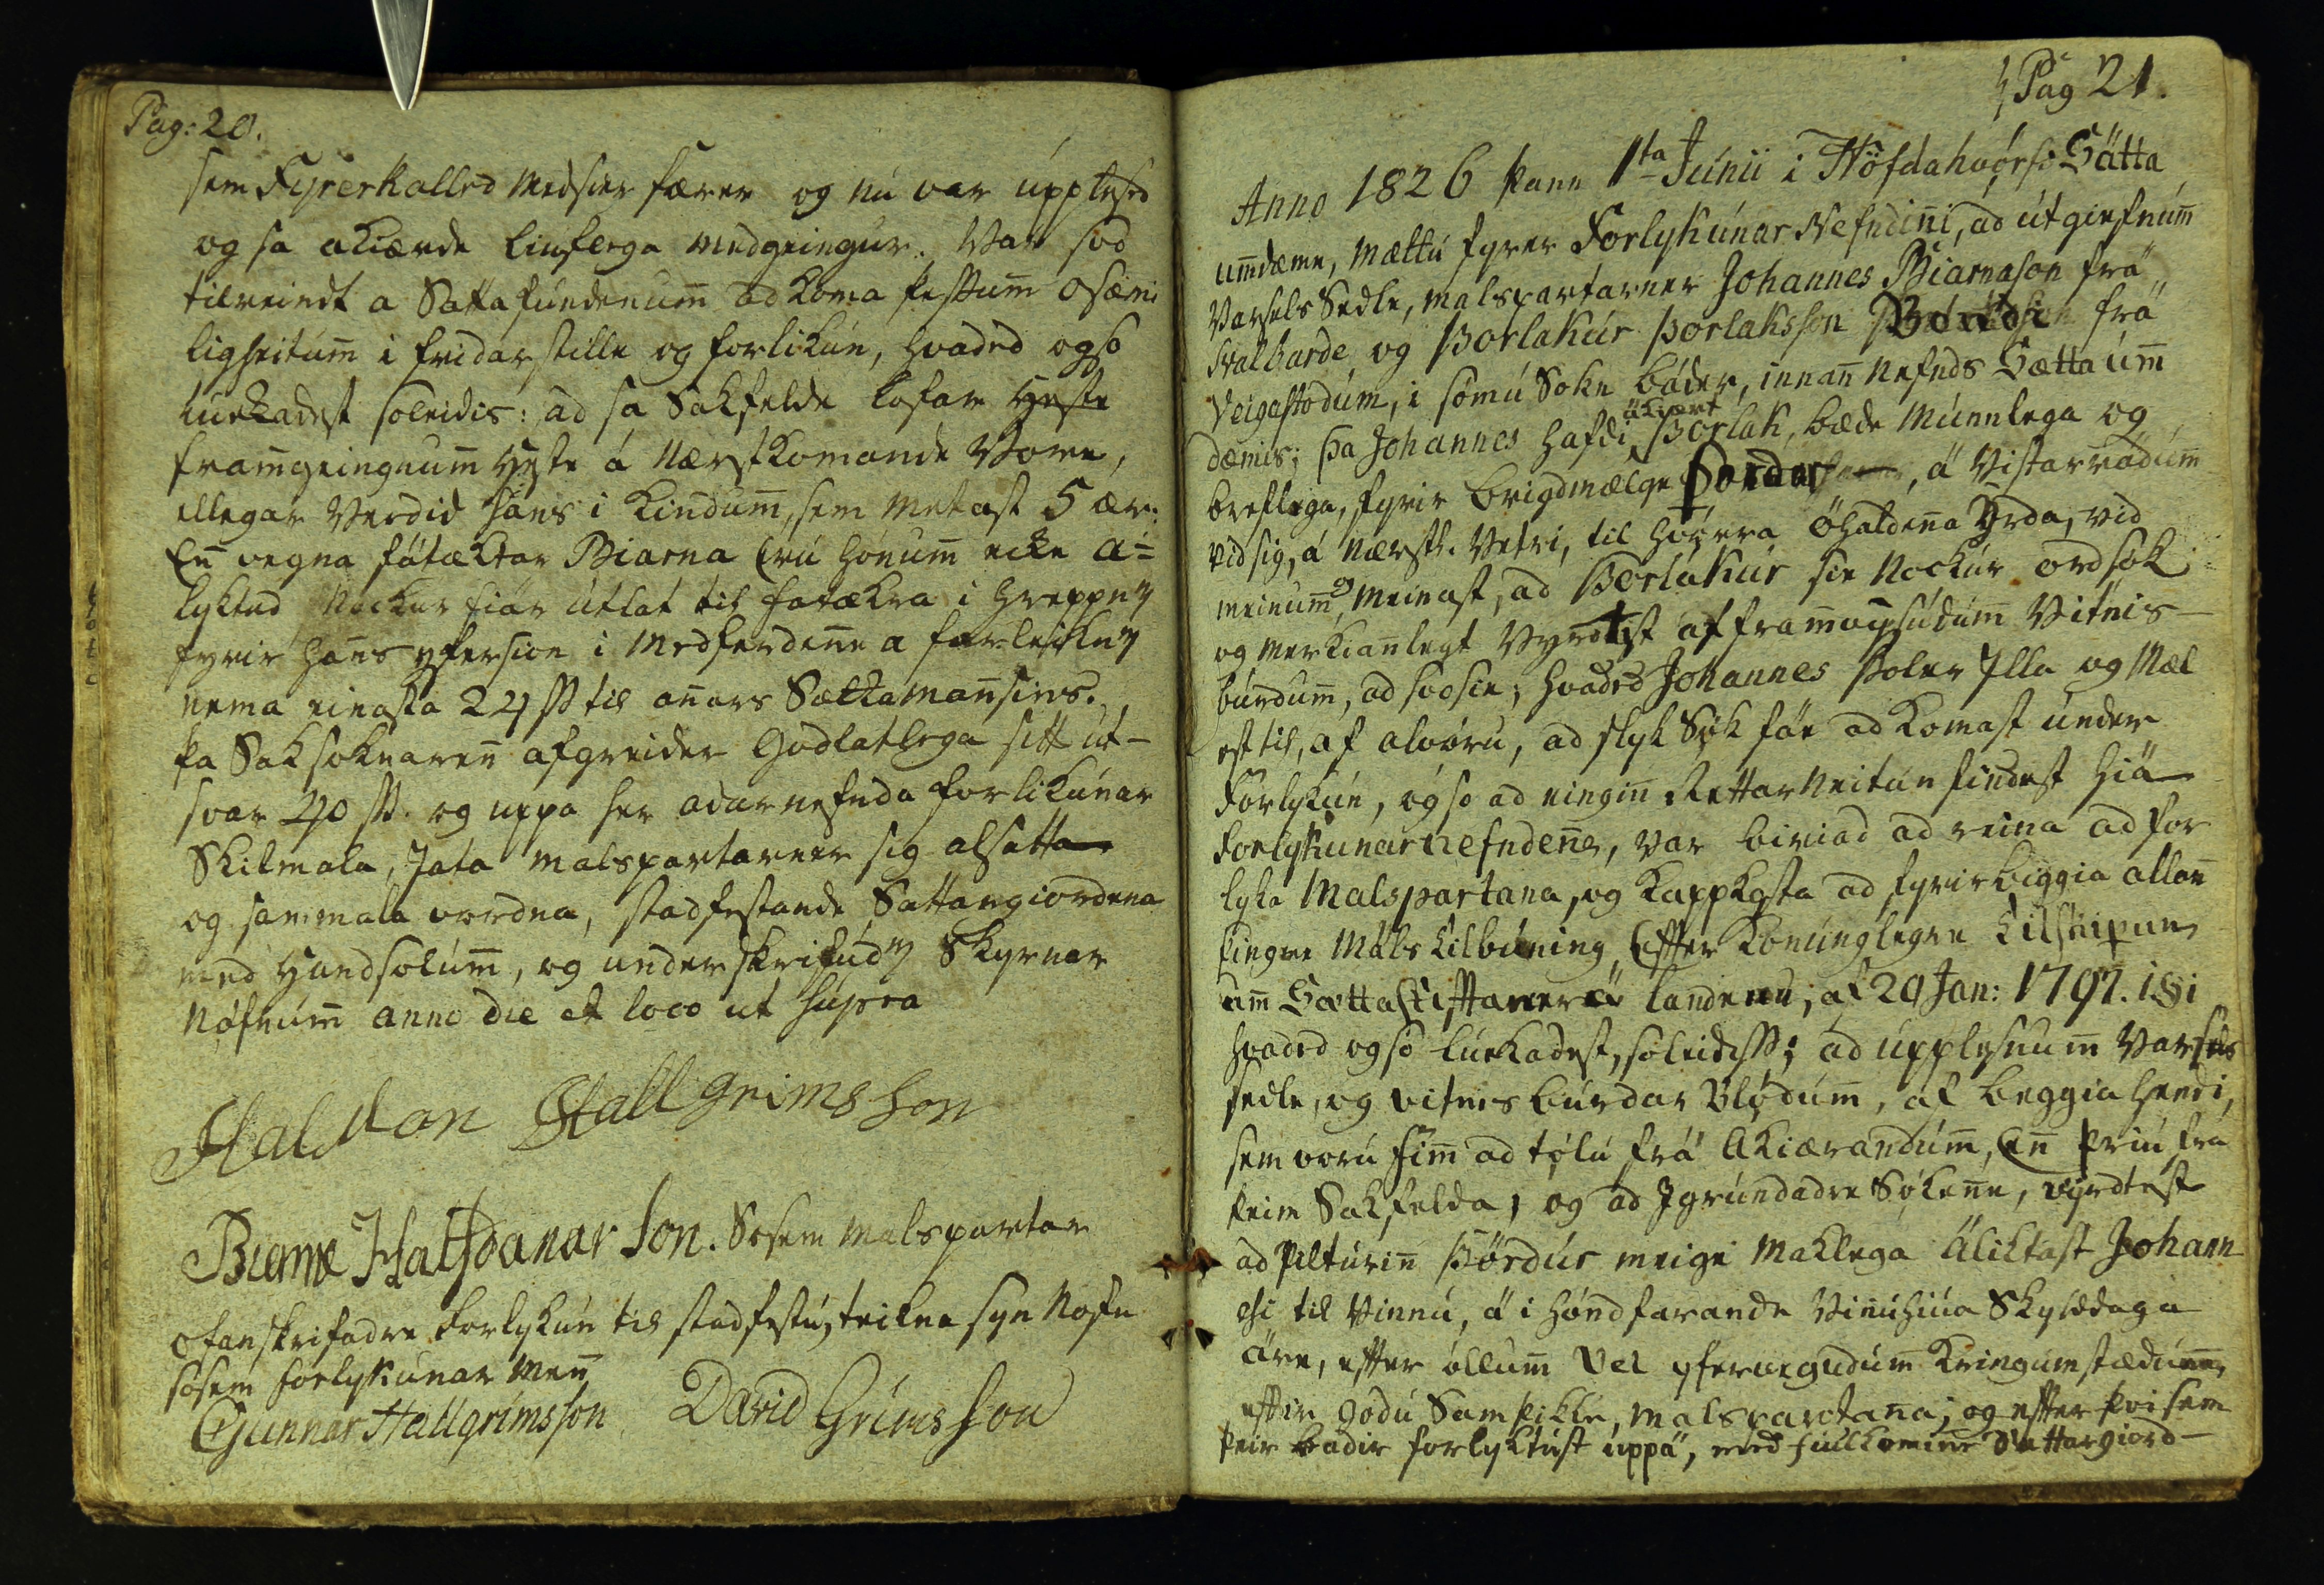 Pag: 20.
sem Fyrerkalled medsier færer og nú var upplesed
og sa akiærde liuflega medgeingur. Var svo
tilreindt a Sattafundenum̅ ad koma þessum̅ osæmi
ligheitum̅ i fridar stille og forlikun, hvaded ogso
luckadest soleidis: ad sa Sakfelde lofar Heste
fram̅geingnum̅ Heste á Nærstkomande Vore,
ellegar Verdid hans i Kindum̅, sem metast 5 ær.
En̅ vegna fátæktar Biarna Eru hönum̅ ecke a=
lyktud Nockur fiár útlát til fatækra i Hreppn̅
fyrir han̅s yfersion i Medferden̅e a
nema einasta 24 ss til an̅ars Sættaman̅sins.
þa Saksoknaren̅ afgreider Godlatlega sitt út-
svar 40 ss. og uppa her adurnefnda forlikunar
Skilmala, Jata malspartarner sig alsatta
og sammala vordna, stadfestande Sattargiordena
med Handsölum̅, og underskrifudu Skyrnar
Nöfnum̅ anno die et loco ut supra
Halfdan Hallgrimsson
Biarne Halfdanarson. Sosem malspartar
ofanskrifadre Forlykun til stadfestu, teikna syn Nofn
sosem forlykunar men̅
Gunnar Hallgrimsson David Grimsson
Pag 21.
Anno 1826 þann 1ta Júnii i Höfdahverfis Sátta
um̅dæme, mættu fyrer Forlykúnar Nefndin̅i, ad útgiefnum̅
Varsels Sedle, malspartarner Johannes Biarnason frä
Svalbarde, og Þorlakúr Þorlaksson frä
Veigastodum, i sömu Sokn báder, innan̅ nefnds Sættaum̅
dæmis; þa Johannes hafdi äkiært Þorlak, bæde munnlega og
breflega, fyrir brigdmælge Þordar, á Vistarrädum̅
vid sig, á nærstl. Vetri, til hvörra öhalden̅a Yrda, vid
meinum̅, meinast, ad Þorlákúr sie Nockur ordsök
og merkian̅legt Vyrdtist af fram̅vysúdum̅ Vitnis-
búrdum̅, ad svosie; hvaded Johannes þoler Illa og Mæl
est til, af alvöru, ad slyk Sök fäe ad komast under
Forlykún, ogso ad eingin̅ Rettar neitun findest hiä
forlykúnarnefnden̅e, var biriad ad reina ad for
lyka Malspartana, og kappkosta ad fyrirbiggia allan̅
þingre Máls tilbúning Efter Konúnglegre tilskipun
um̅ Sættastiftaner ä landenu, af 20 Jan: 1797. i §i
hvaded ogso luckadest, soleidess; ad upplesnum̅ Varsels
sedle, og vitnisburdar Blödum̅, af beggia hendi,
sem voru fim̅ ad tölu frä Akiærandum̅, En̅ þriu frä
þeim Sakfelda, og ad Igrundadre Söken̅e, vyrdtest
ad Pilturin̅ Þördúr meige maklega äliktast Johann
esi til Vinnú, ä i höndfarande Vin̅uhiúa Skyldaga
äre, efter öllum̅ Vel yfervegudum̅ Kringumstædum̅,
efter godu Samþikki, malspartan̅a; og efter þvi sem
þeir badir forlyktust uppä, med fullkomin̅e Sattargiord-